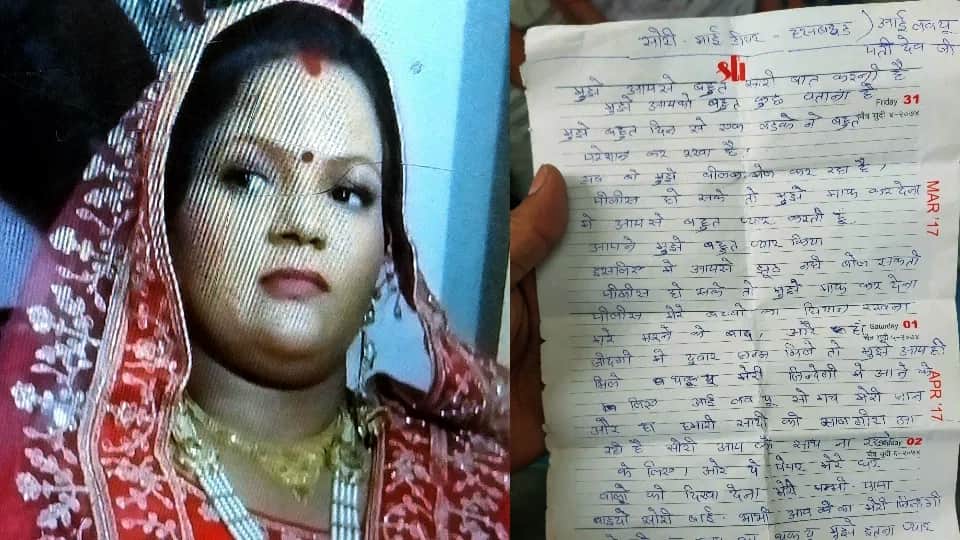 सोरी - माई डीयर - हसबेंड ) आई लव यू
पती देव जी
sh
मुझे आपसे बहुत सारी बात करनी है
मुझे आपको बहुत कुछ बताना है
Friday 31
मुझे बहुत दिन से एक लड़के ने बहुत
परेशान कर रखा है,
अब वो मुझे बोल कर रहा है,
पीलीस हो सके तो मुझे माफ कर देना
MAR '17
मे आपसे बहुत प्यार करती हूँ
आपने मुझे बहुत प्यार किया
इसलिए मे आपसे झूठ नही बोल सकती
पीलीस हो सके तो मुझे माफ कर देना
पीलीस मेरे बच्चो का ध्यान रखना
मेरे मरने के बाद और
Saturday 01
जीदगी मे दुबारा जन्म मिले तो मुझे आप ही
मिले थैंक्यू मेरी जिन्देगी मे आने के
APR '17
लिए आई लव यू सो मच मेरी जान
और हा हमारी सादी की आ
रही है सोरी आप के साथ ना
Sunday 02
के लिए, और ये पेपर मेरे घर
वालो को दिखा देना मेरी मम्मी पापा
भाइयो सोरी भाई - भाभी आप मेरी जिन्दगी
थैंक यू मुझे इतना प्यार